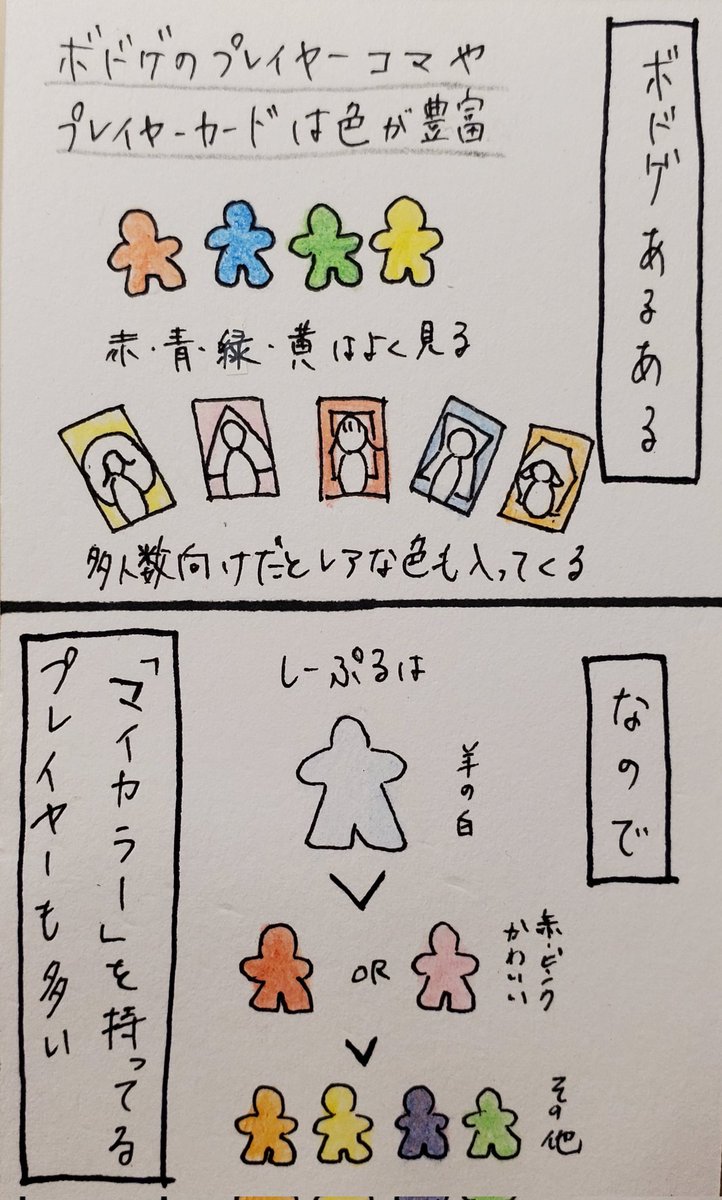 ボドゲあるある
ボドゲのプレイヤーコマや
プレイヤーカードは色が豊富
赤・青・緑・黄はよく見る
多人数向けだとレアな色も入ってくる
なので
しーぷるは
羊の白
赤・ピンク
かわいい
OR
その他
「マイカラー」を持ってる
プレイヤーも多い